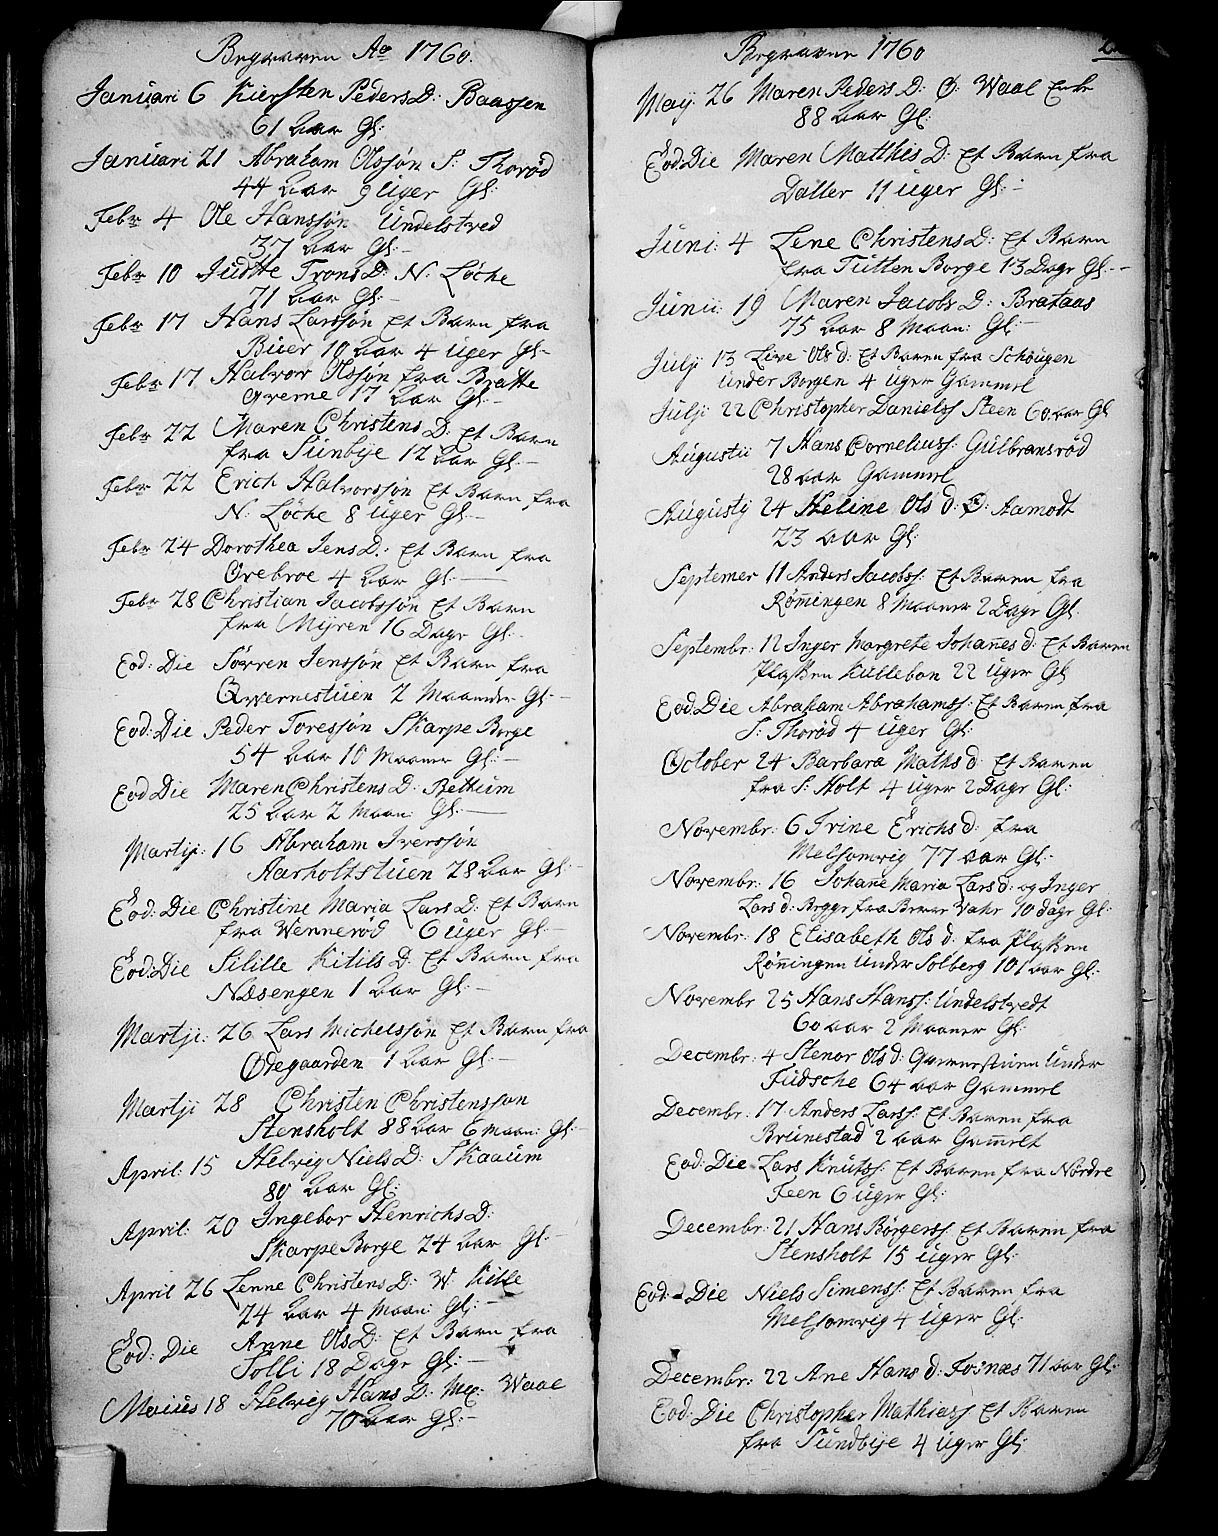 Begraven Ao 1760.
Januari 6 Kiersten Peders D: Baassen
61 aar Gl:
Januari 21 Abraham Olssøn S: Thorød
44 aar 9 Uger Gl:
Febr 4 Ole Hanssøn Undelstved
37 aar Gl:
Febr 10 Judtte Trons D: N: Løche
71 aar Gl:
Febr 17 Hans Larssøn Et Barn fra
Buer 10 aar 4 Uger Gl:
Febr 17 Halvor Olssøn fra Bratte
qverne 17 aar Gl:
Febr 22 Maren Christens D: Et Barn
fra Sunbye 12 aar Gl:
Febr 22 Erich Halvorssøn Et Barn fra
N: Løche 8 Uger Gl:
Febr 24 Dorothea Jens D: Et Barn fra
Orebroe 4 aar Gl:
Febr 28 Christian Jacobssøn Et Barn
fra Mÿren 16 Dage Gl:
Eod: Die Søvren Jenssøn Et Barn fra
Qvvernestuen 2 Maaneder Gl:
Eod: Die Peder Toressøn Skarpe Borge
54 aar 10 Maaner Gl:
Eod Die Maren Christens D: Bettum
25 aar 2 Maan: Gl:
Martji: 16 Abraham Iverssøn
Aarholtstuen 28 aar Gl:
Eod: Die Christine Maria Lars D: Et Barn
fra Wennerød 6 Uger Gl:
Eod: Die Silille Kitils D: Et Barn fra
Næsengen 1 aar Gl:
Martji: 26 Lars Michelssøn Et Barn fra
Ødegaarden 1 aar Gl:
Martji 28 Christen Christenssøn
Stensholt 88 aar 6 maan: Gl:
April: 15 Helvig Niels D: Skaaum
80 aar Gl:
April: 20 Ingebor Henrichs D:
Skarpe Borge 24 aar Gl:
April 26 Lenne Christens D: W: Kille
74 aar 4 Maan: Gl:
Eod: Die Anne Ols D: Et Barn fra
Tolli 18 Dage Gl:
Maius 18 Helvig Hans D: Waal
70 aar Gl:
Begraven 1760
Maÿ: 26 Maren Peders D: Ø: Waal Enke
88 aar Gl:
Eod: Die Maren Matthis D: Et Barn fra
Daller 11 Uger Gl:
Juni: 4 Lene Christens D: Et Barn
fra Tutten Borge 13 Dage Gl:
Junii: 19 Maren Jacobs D: Brataas
75 aar 8 Maan: Gl:
Julji 13 Live Ols d: Et Baren fra Schougen
under Borgen 4 Uger Gammel
Julji: 22 Christopher Danielss Steen 60 aar Gl
Augustii 7 Hans Corneliuss: Gulbransrød
28 aar Gammel
Augustÿ 24 Heline Ols d: Ø: Aamodt
23 aar Gl:
Septemer 11 Anders Jacobs: Et Baren fra
Røm̄ingen 8 Maaner 2 Dage Gl:
Septembr: 12 Inger Margrete Johan̄es d: Et Baren
Plassen Kullebon 22 Uger Gl
Eod: Die Abraham Abrahamss: Et Baren fra
S: Thorød 4 Uger Gl:
October 24 Barbara Maths d: Et Baren
fra S: Holt 4 Uger 2 Dage Gl:
Novembr: 6 Trine Erichs d: fra
Melsomvig 77 aar Gl:
Novembr: 16 Johan̄e Maria Lars d: og Inger
Lars d: Begge fra Wahr 10 dage Gl:
Novembr: 18 Elisabeth Ols d: fra Plassen
Røn̄ingen Under Solberg 101 aar Gl:
Novembr 25 Hans Hanss: Undelstvedt
60 aar 2 Maaner Gl:
Decembr: 4 Stenor Ols d: Qvernestuen Under
Fudsche 64 aar Gammel
Decembr: 17 Anders Larss: Et Baren fra
Brunestad 2 aar Gam̄elt
Eod: Die Lars Knutss: Et Baren fra Nordre
Feen 6 Uger Gl:
Decembr: 21 Hans Børgerss: Et Baren fra
Stensholt 15 Uger Gl:
Eod: Die Niels Simenss: Et Baren fra
Melsomvig 4 Uger Gl:
Decembr: 22 Ane Hans d: Fosnæs 71 aar Gl:
Eod: Die Christopher Mathiass Et Baren
fra Sundbÿe 4 Uger Gl: